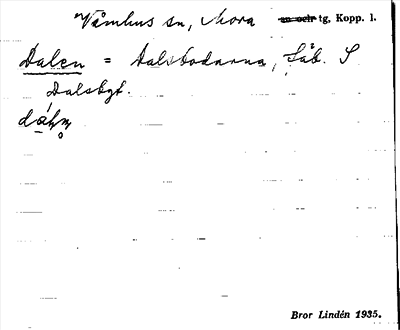 Våmhus sn, Mora ~~sn och~~ tg, Kopp. l.
Dalen = Dalsbodarna, Fäb. S
Dalsbyt.
Bror Lindén 1935.